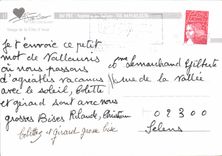 Je t'envoie ce petit
mot de Vallauris
où nous passons
d'agréables vacances
avec le soleil, Colette
et gérard sont avec nous
grosses Bises Rolande, Christian
Colette et gérard grosse bise
Mme Lemarchand Gilberte
rue de la Vallée
02300
Selens